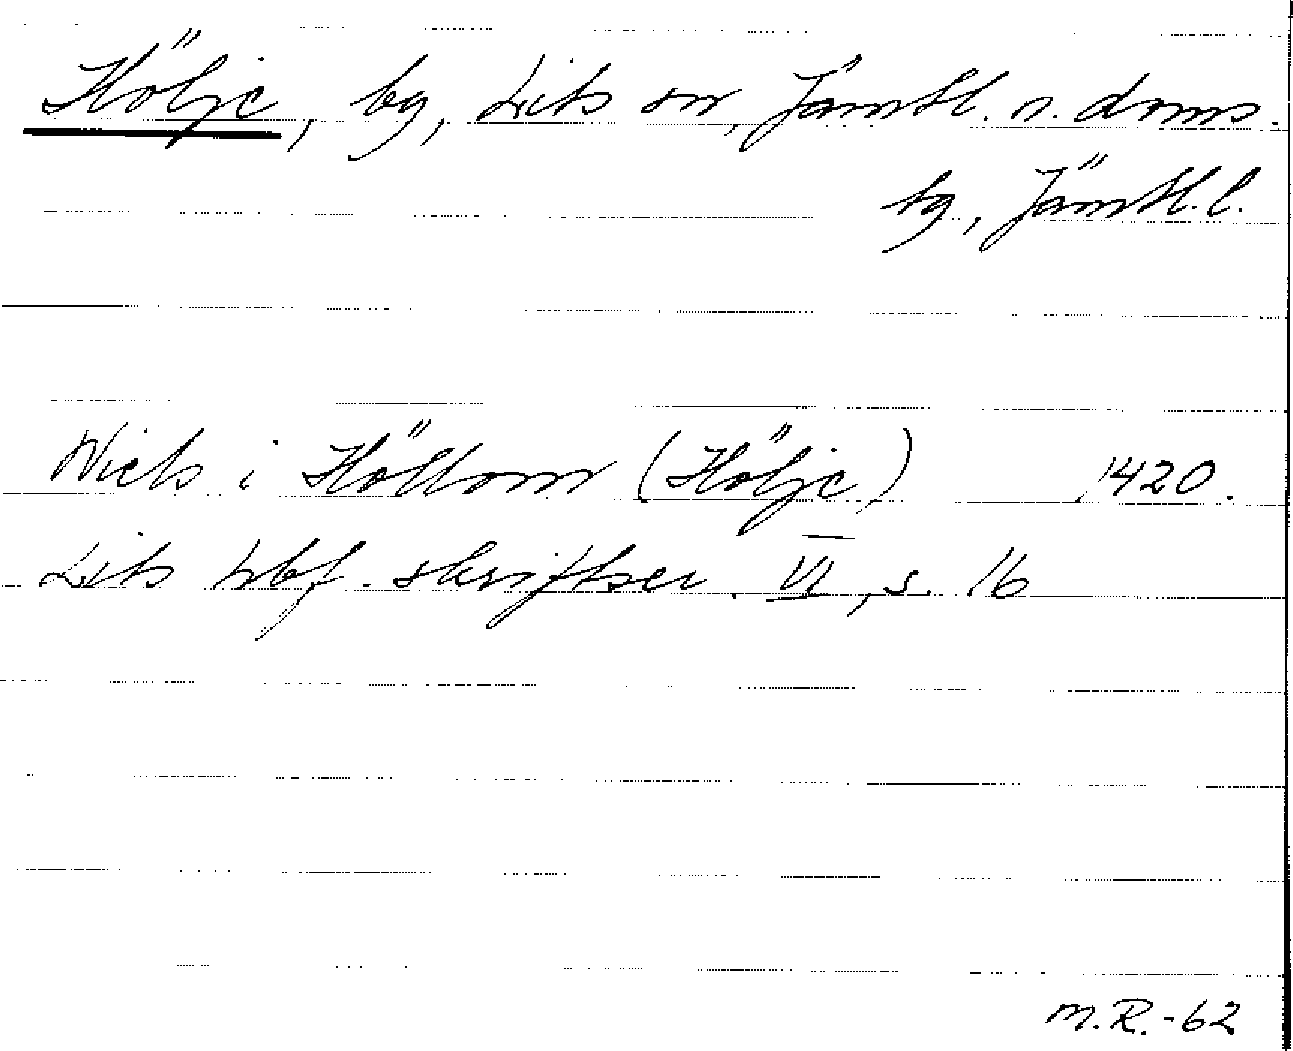 Hölje, by, Lits sn, Jämtl. n. doms.
tg, Jämtl. l.
Niels i Höllom (Hölje) 1420.
Lits hbf. skriftser. VI, s. 16
M.R.-62